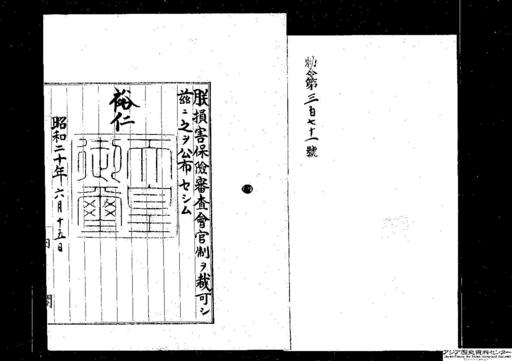 勅令第三百七十一號
朕損害保險審査會官制ヲ裁可シ
茲ニ之ヲ公布セシム
裕仁
天皇御璽
昭和二十年六月十五日
内閣
アジア歴史資料センター